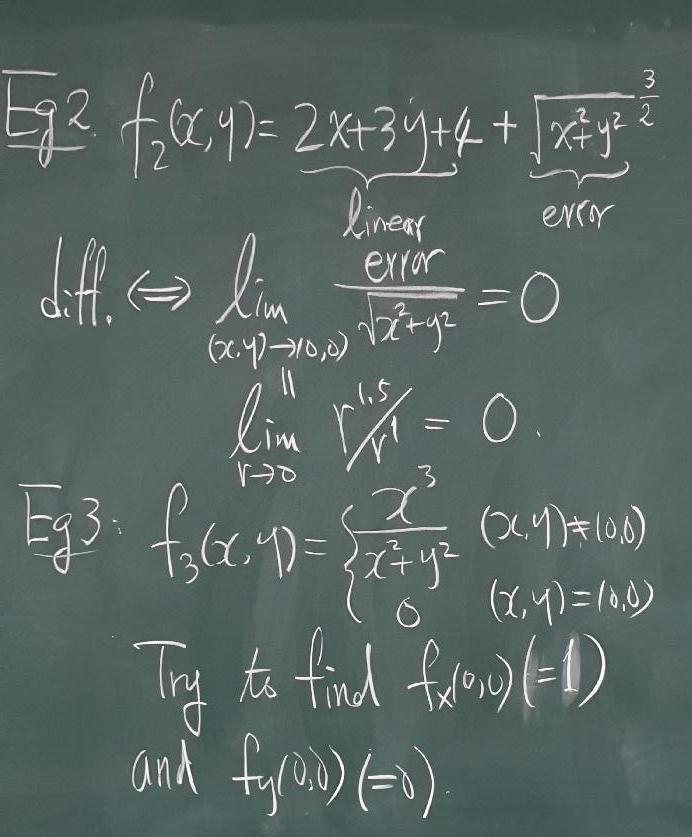 Eg2. f₂(x,y)= 2x+3y+4 + √(x²+y²)^(3/2)
linear error
diff. ⇔ lim_{(x,y)→(0,0)} error/√(x²+y²) = 0
||
lim_{r→0} r^{1.5}/r¹ = 0.
Eg3: f₃(x,y)= { x³/(x²+y²) (x,y)≠(0,0)
0 (x,y)=(0,0)
Try to find fₓ(0,0) (=1)
and f_y(0,0) (=0).